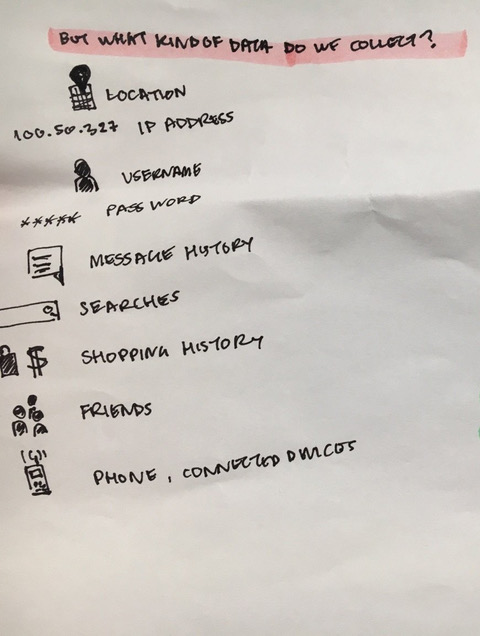 BUT WHAT KIND OF DATA DO WE COLLECT?
LOCATION
100.50.327 IP ADDRESS
USERNAME
***** PASSWORD
MESSAGE HISTORY
SEARCHES
$ SHOPPING HISTORY
FRIENDS
PHONE, CONNECTED DEVICES